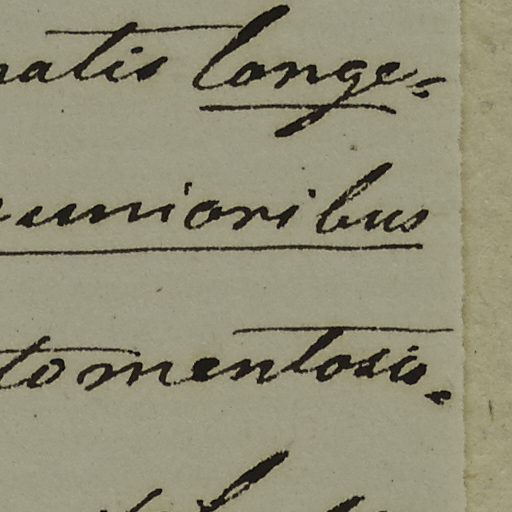 natis longe-
unioribus
tomentosis.